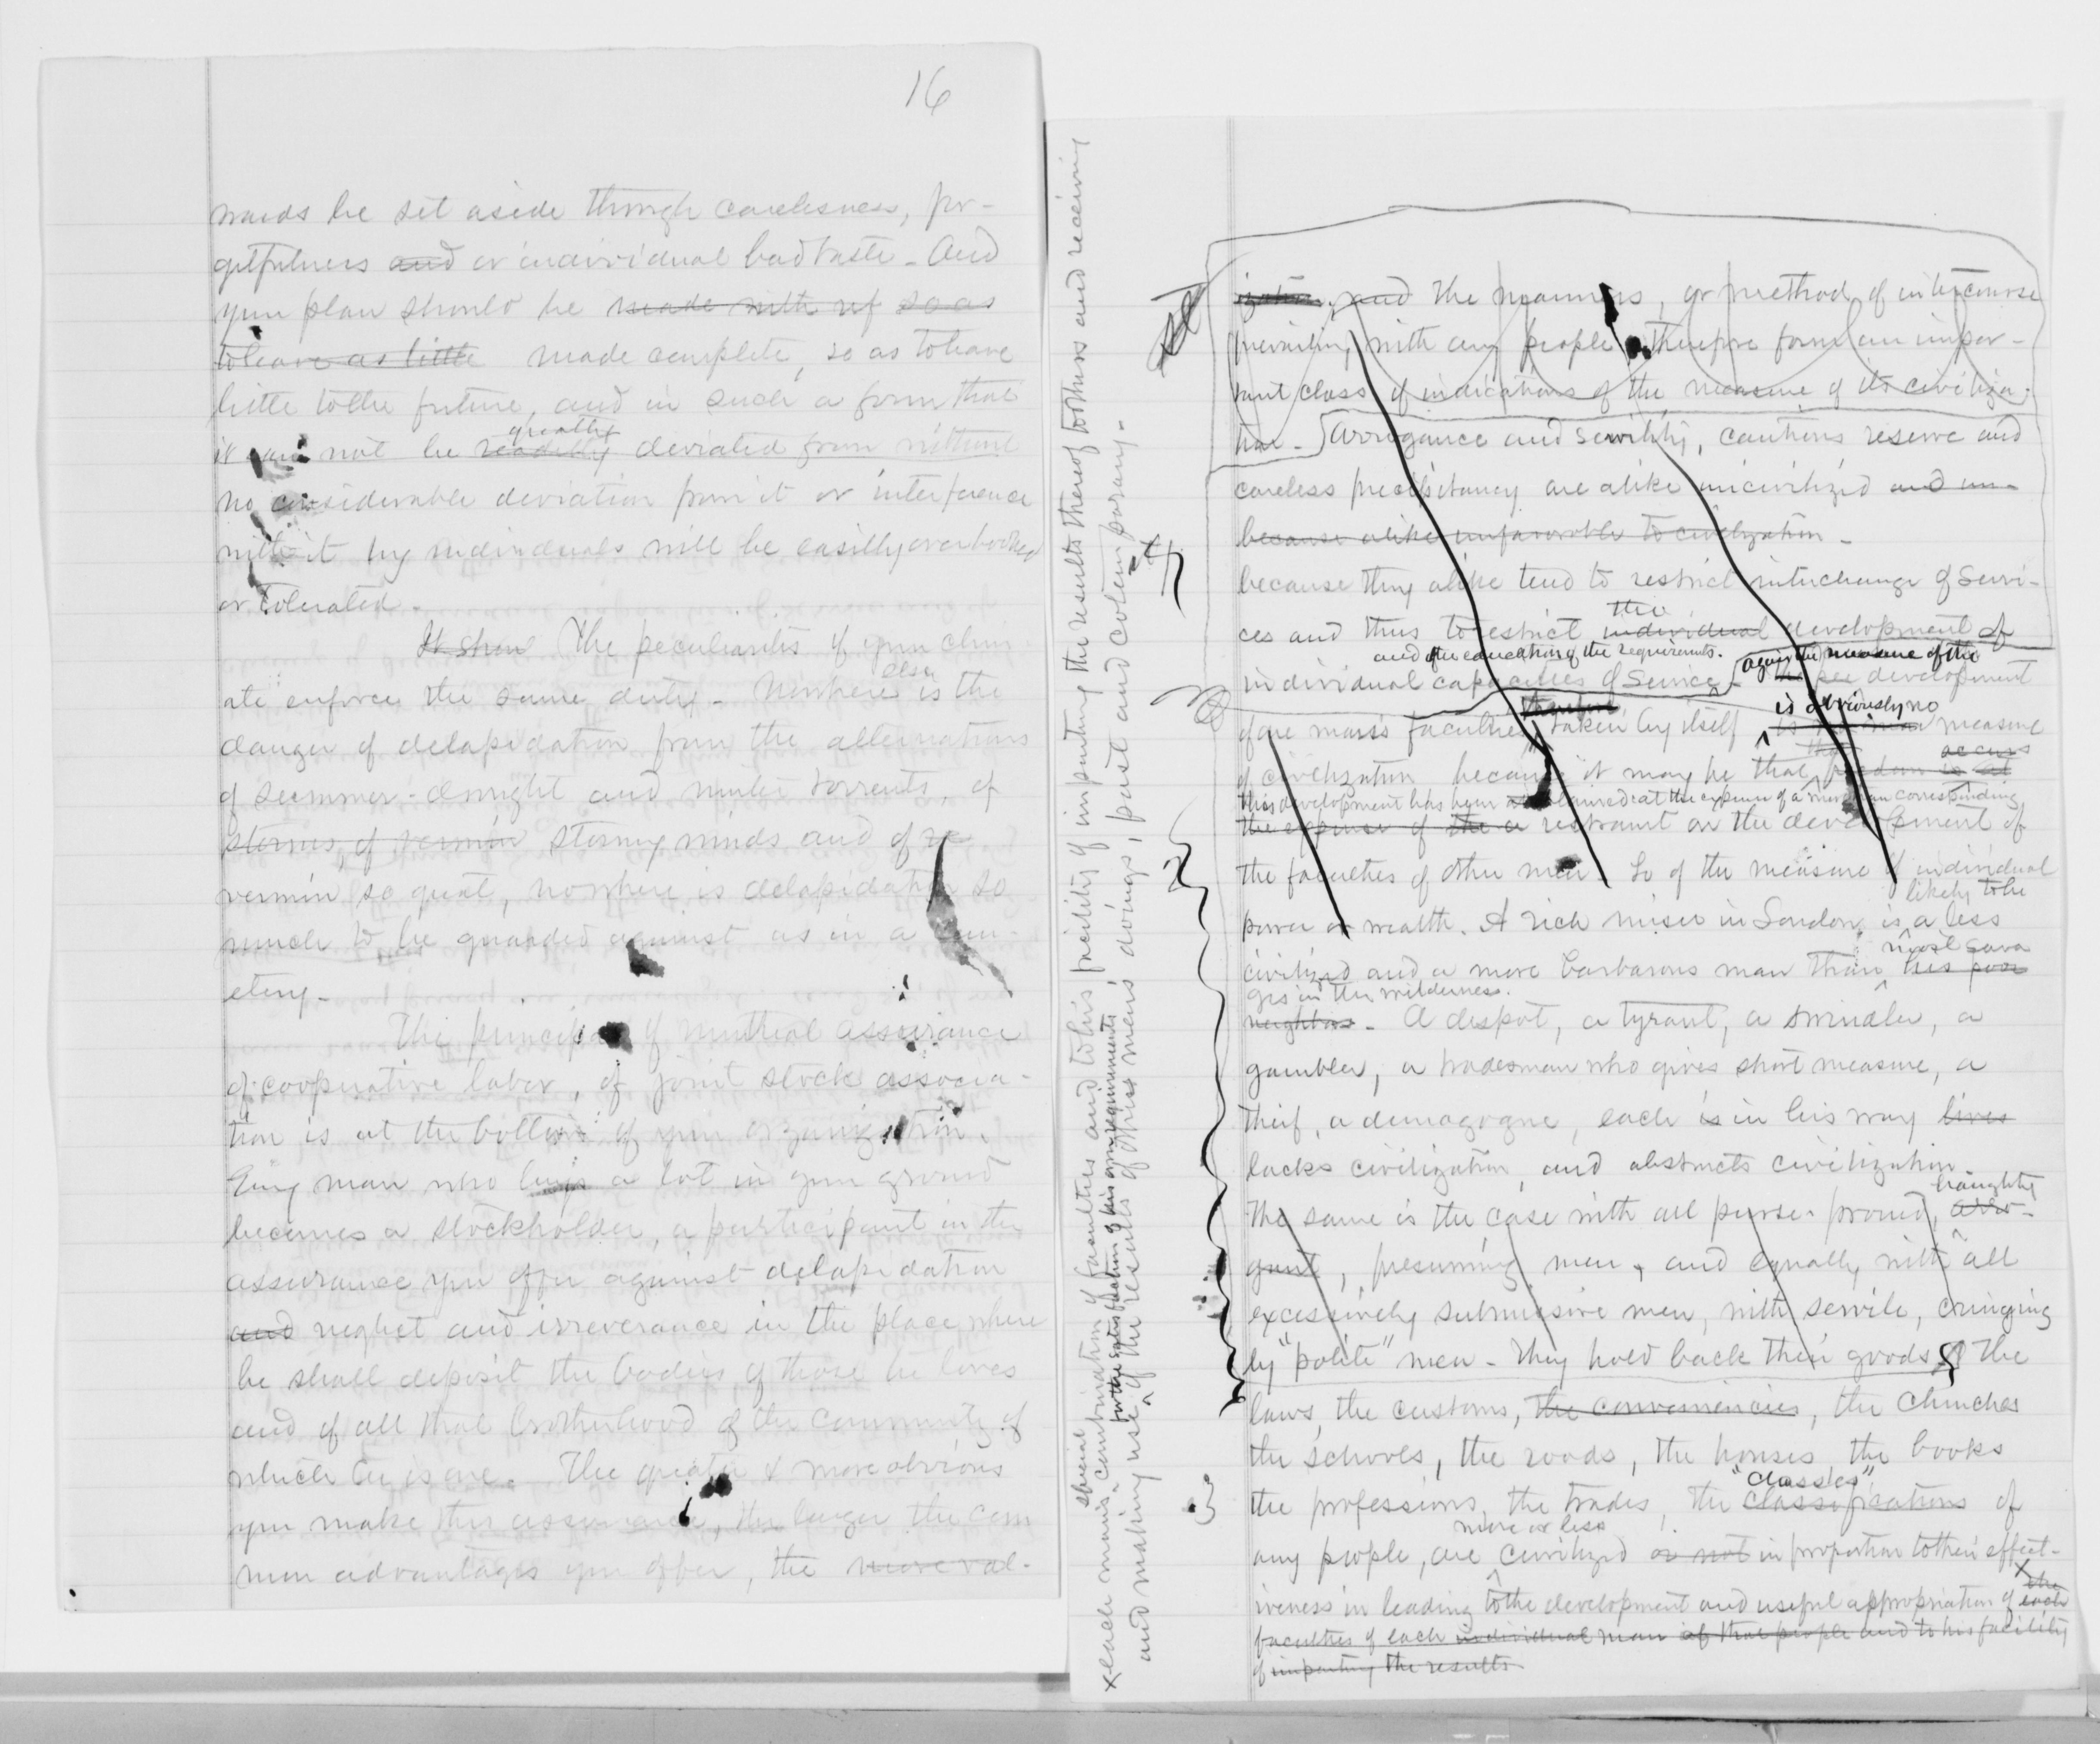 16
wards be set aside through carelesness, for-
getfulness and or individual bad taste. And
your plan should be made with ref so as
to leave as little made complete, so as to leave
little to the future, and in such a form that
greatly
it can not be readily deviated from without
no considerable deviation from it or interference
with it by individuals will be easilly overlooked
or tolerated.
It shou The peculiarities of your clim
else
ate enforce the same duty. Nowhere is the
danger of delapidation from the alternations
of summer-drought and winter torrents, of
storms, of vermin stormy winds and of ve
vermin so great, nowhere is delapidation so
much to be guarded against as in a cem-
etery.
The principle of mutual assurance
of cooperative labor, of joint stock associa-
tion is at the bottom of your organization.
Every man who buys a lot in your ground
becomes a stockholder, a participant in the
assurance you offer against delapidation
and neglect and irreverance in the place where
he shall deposit the bodies of those he loves
and of all that brotherhood of the community of
which he is one. The greater & more obvious
you make this assurance, the larger the com
mon advantages you offer, the more val-
ization. and the manners, or method of intercourse
prevailing with any people therefore form an impor-
tant class of indications of the measure of its civiliza-
tion. Arrogance and servility, cautious reserve and
careless precipitancy are alike uncivilized and un-
because alike unfavorable to civilization.
because they alike tend to restrict interchange of servi-
the
ces and thus to restrict individual development of
and the education of the requirements. again the measure of the
individual capacities of service. development
therefore is obviously no
of one man's faculties taken by itself measure
that occurs
of civilization because it may be that freedom is at
this development has been at the expense of a more than corresponding
the expense of the a restraint on the development of
the faculties of other men. So of the measure of individual
likely to be
power or wealth. A rich miser in London is a less
most sava
civilized and a more barbarous man than his poor
ges in the wilderness.
neighbors. A despot, a tyrant, a swindler, a
gambler, a tradesman who gives short measure, a
theif, a demagogue, each is in his way lives
lacks civilization, and obstructs civilization.
haughty
The same is the case with all purse-proud, arro-
gant, presuming men, and equally with all
excessively submissive men, with servile, cringing
ly "polite" men. They hold back their goods. The
laws, the customs, the conveniencies, the churches
the schools, the roads, the houses, the books
"classes"
the professions, the trades, the classifications of
more or less
any people, are civilized or not in proportion to their effect-
x the
iveness in leading to the development and useful appropriation of each
faculties of each individual man of that people and to his facility
of imparting the results
special
x each man's combination of faculties and to his facility of imparting the results thereof to others and receiving
for the satisfaction of his own requirements
and making use of the results of other mens' doings, past and cotemporary.
2
3